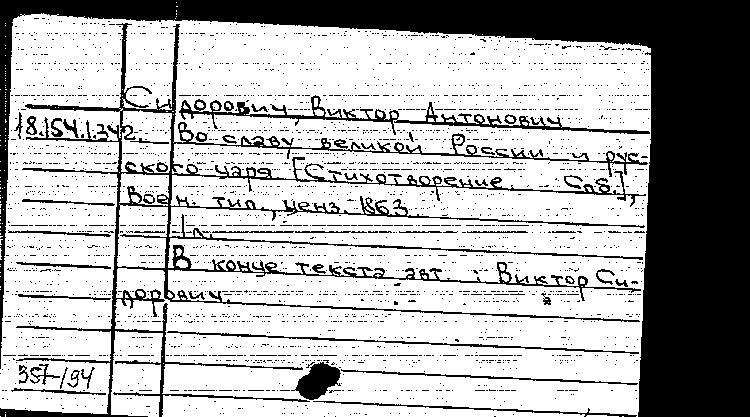 Сидорович, Виктор Антонович
18.154.1.342. Во славу великой России и рус-
ского царя [Стихотворение. Спб.],
Воен. тип., ценз. 1863.
1 л.
В конце текста авт. : Виктор Си-
дорович.
357-194